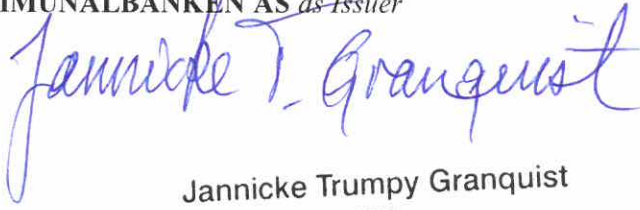 IMUNALBANKEN AS as Issuer
Jannicke T. Granquist
Jannicke Trumpy Granquist